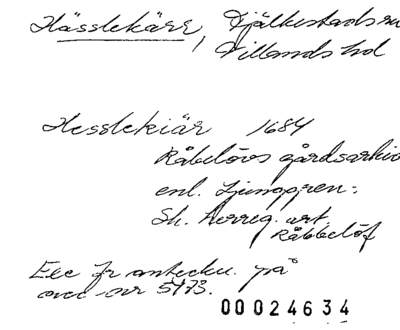 Hässlekärr, Fjälkestads sn
Villands hd
Hesslekiär 1684
Råbelövs gårdsarkiv
enl. Ljunggren:
Sk. herreg. art.
Råbbelöf
Exc fr anteckn. på
acc nr 5173.
00024634